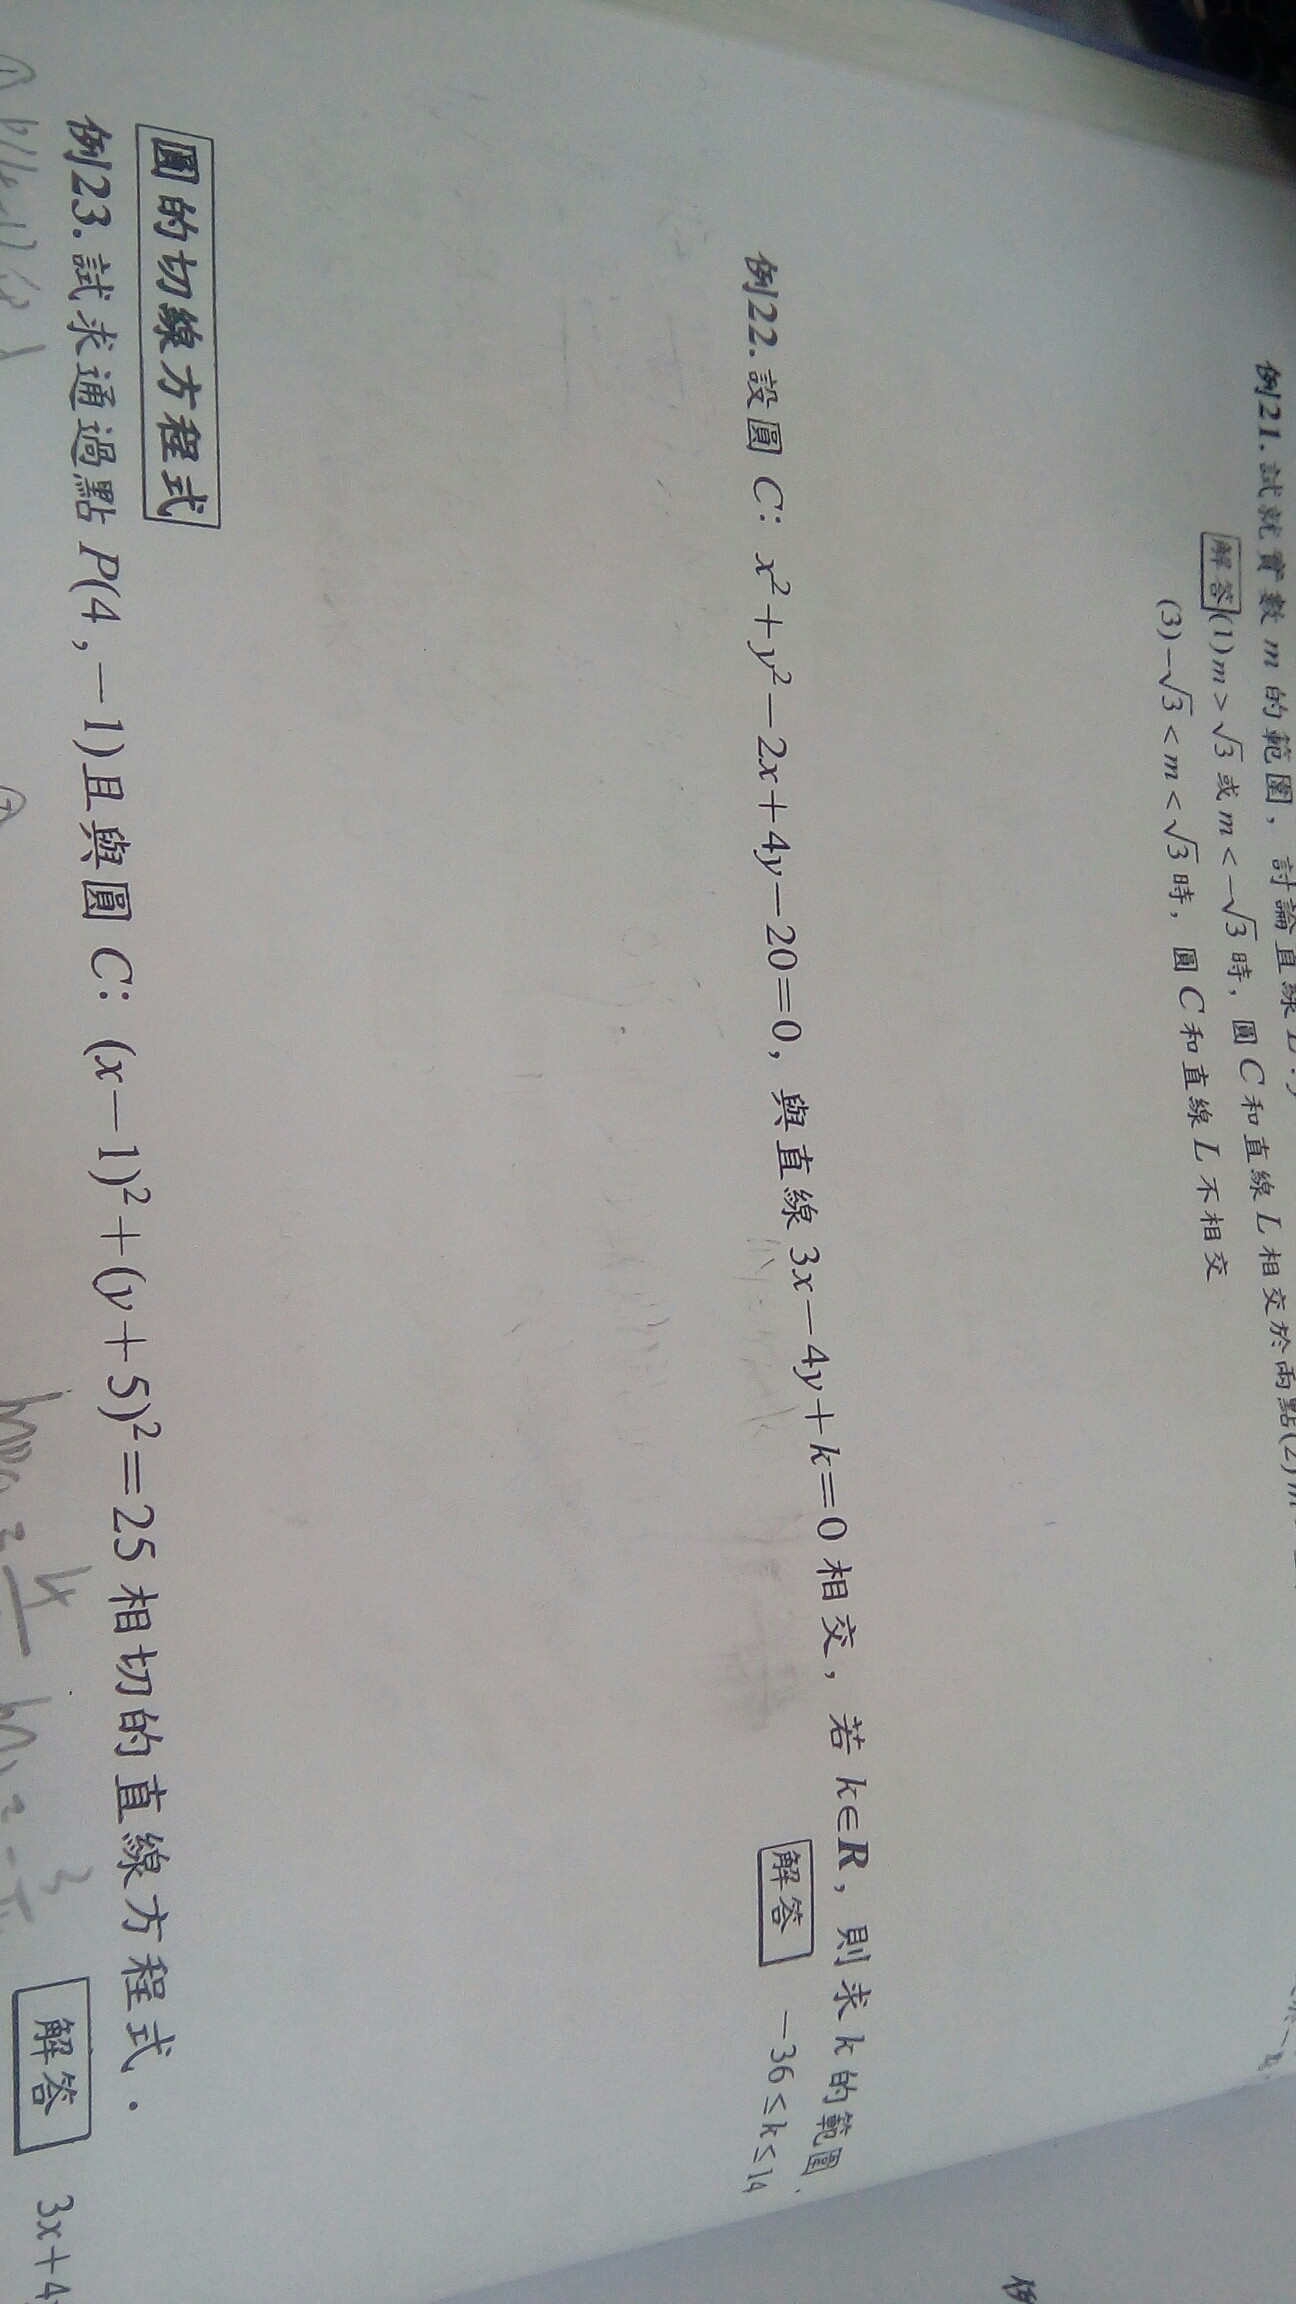 例21.試就實數 m 的範圍，討論直線
解答 (1) m > √3 或 m < -√3 時，圓 C 和直線 L 相交於兩點(2)
(3) -√3 < m < √3 時，圓 C 和直線 L 不相交
例22.設圓 C：x²+y²-2x+4y-20=0，與直線 3x-4y+k=0 相交，若 k∈R，則求 k 的範圍.
解答 -36≤k≤14
圓的切線方程式
例23.試求通過點 P(4,-1)且與圓 C：(x-1)²+(y+5)²=25 相切的直線方程式．
解答 3x+4
例